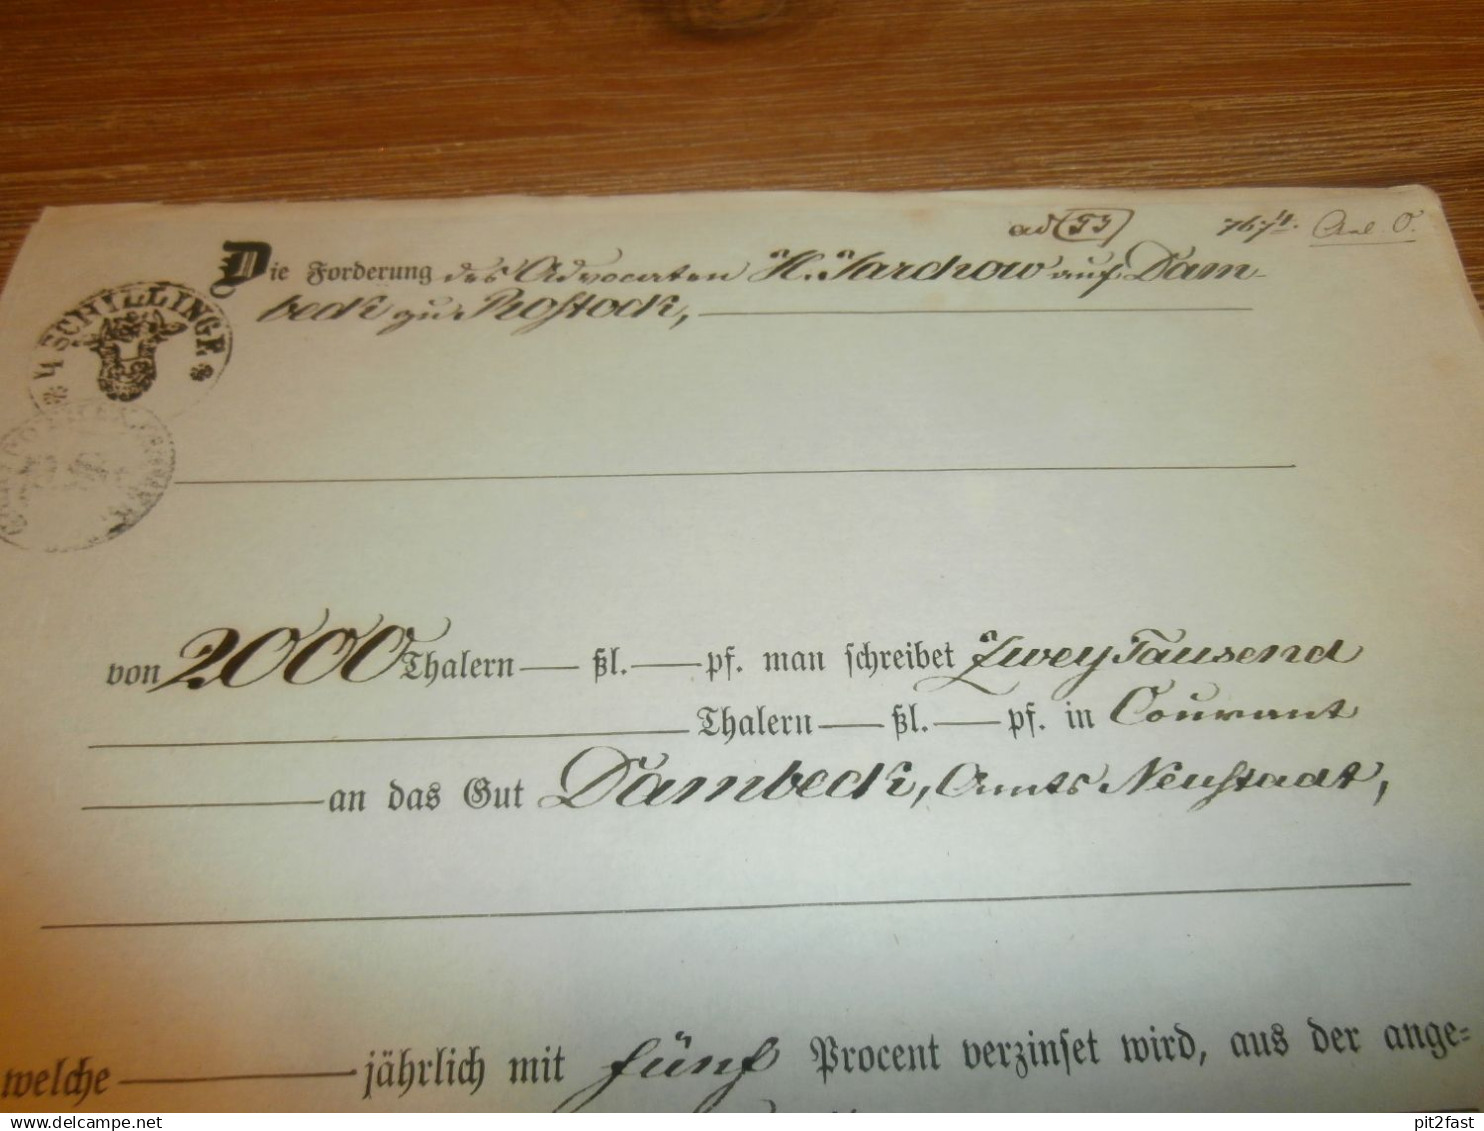 ad
Die Forderung des Advocaten H. Jarchow auf Dam-
beck zu Rostock,
4 SCHILLINGE
von 2000 Thalern ßl. pf. man schreibet Zwey Tausend
Thalern ßl. pf. in Courant
an das Gut Dambeck, Amts Neustadt,
welche jährlich mit fünf Procent verzinset wird, aus der ange-
pit2fast